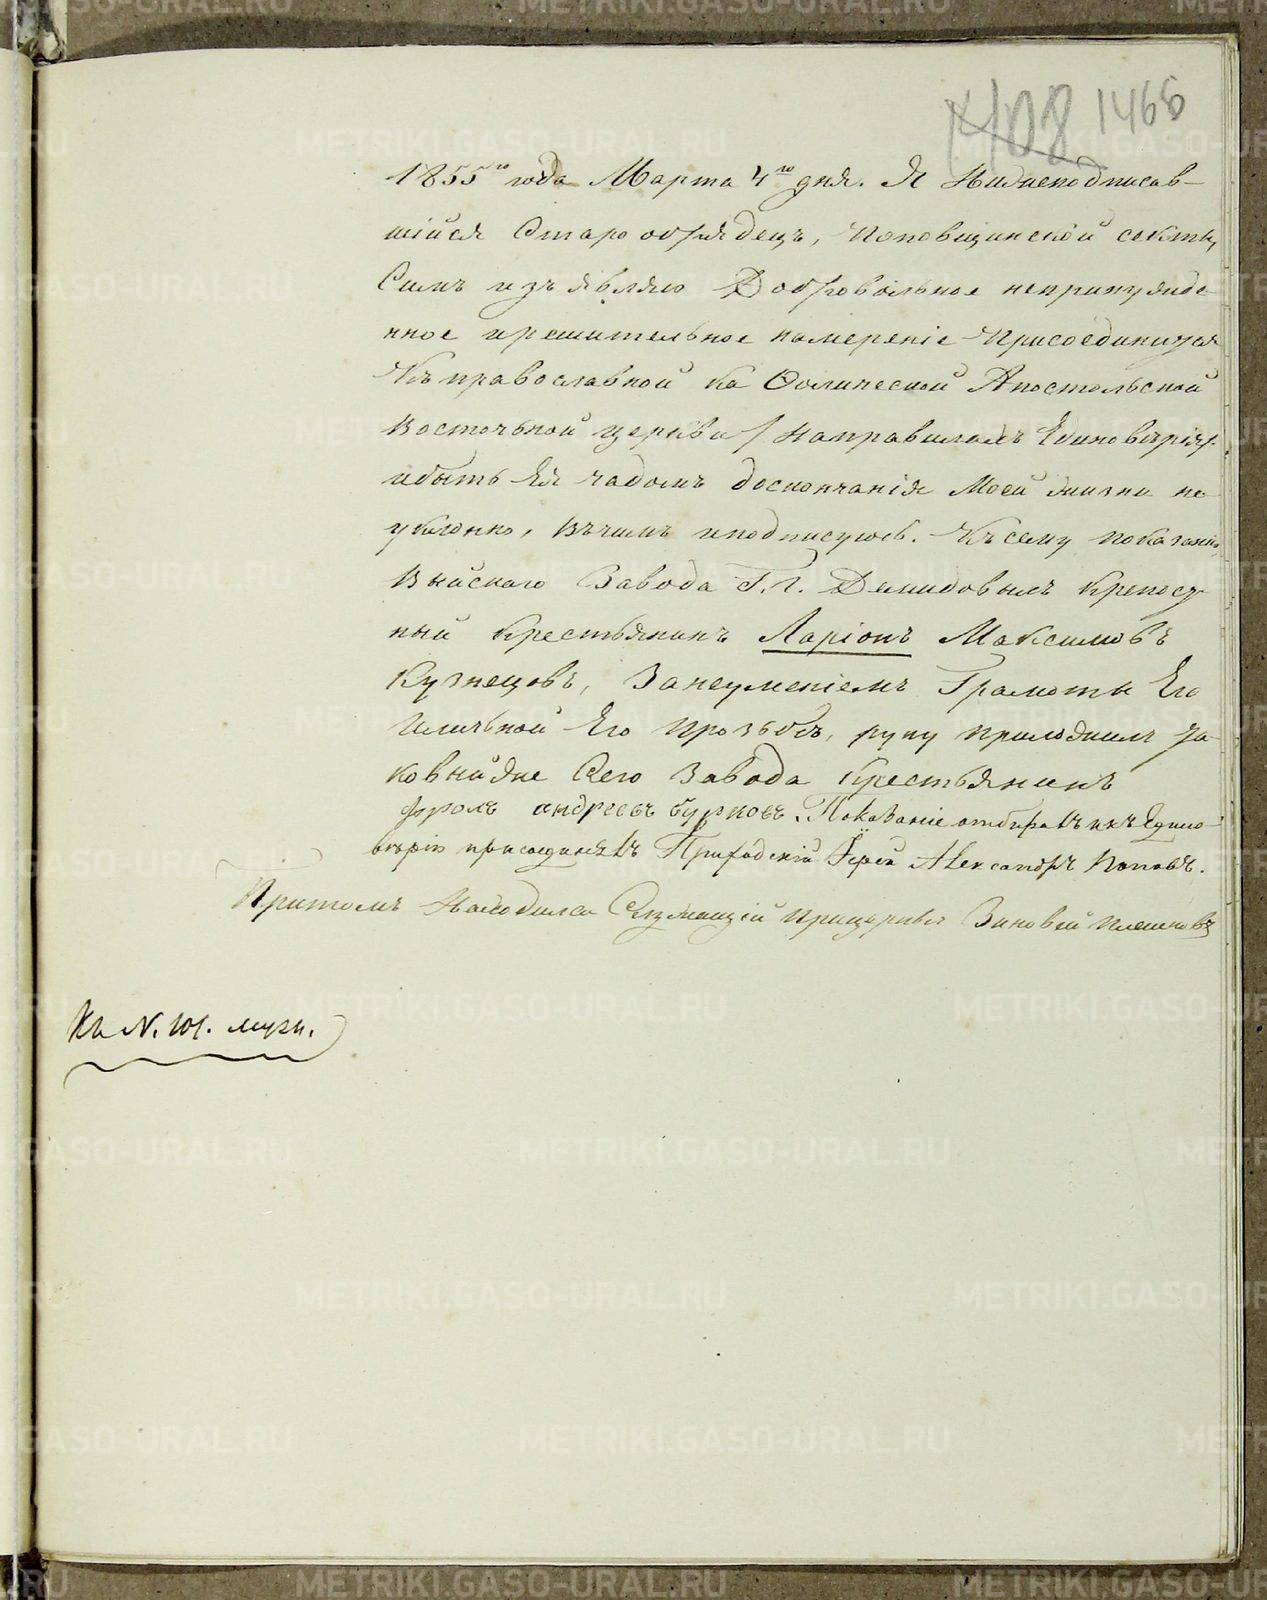 1408 1466
1855го года Марта 4го дня. Я Нижеподписав-
шійся Старообрядецъ, Поповщинской секты,
Симъ изъявляю Добровольное непринужде-
нное ирешительное намереніе Присоединится
Къ православной Кафолической Апостольской
Восточьной церкви / Направилахъ Единоверія /
ибыть Ея чадомъ доскончанія Моей жизни не
уклонно, Вчемъ иподписуюсь. Къ сему показанію
Выйскаго Завода Г.г. Демидовымъ Крепост
ный Крестьянинъ Ларіонъ Максимовъ
Кузнецовъ, Занеуменіемъ Грамоты Его
иличьной Его прозьбъ, руку приложилъ та
ковыйже Сего Завода Крестьянинъ
фролъ андреевъ бурковъ. Показаніе отбиралъ икъ Едино-
верію присоединялъ Приходскій Іерей Александръ Поповъ.
Притомъ Находился Служащій Прицеркве Зиновей Плешковъ
Къ N. 101. муж.
METRIKI.GASO-URAL.RU